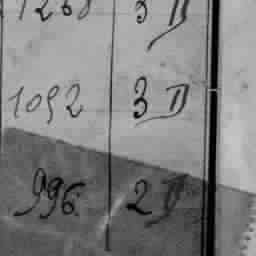 1268 3 D
1092 3 D
996 2 D